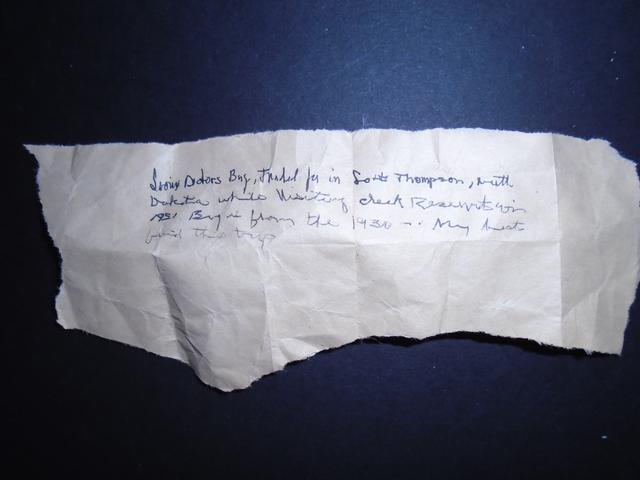 Sioux Doctors Bag, Traded for in Thompson, North
Dakota while Visiting Creek Reservation
1951 Bag is from the 1930
this trip